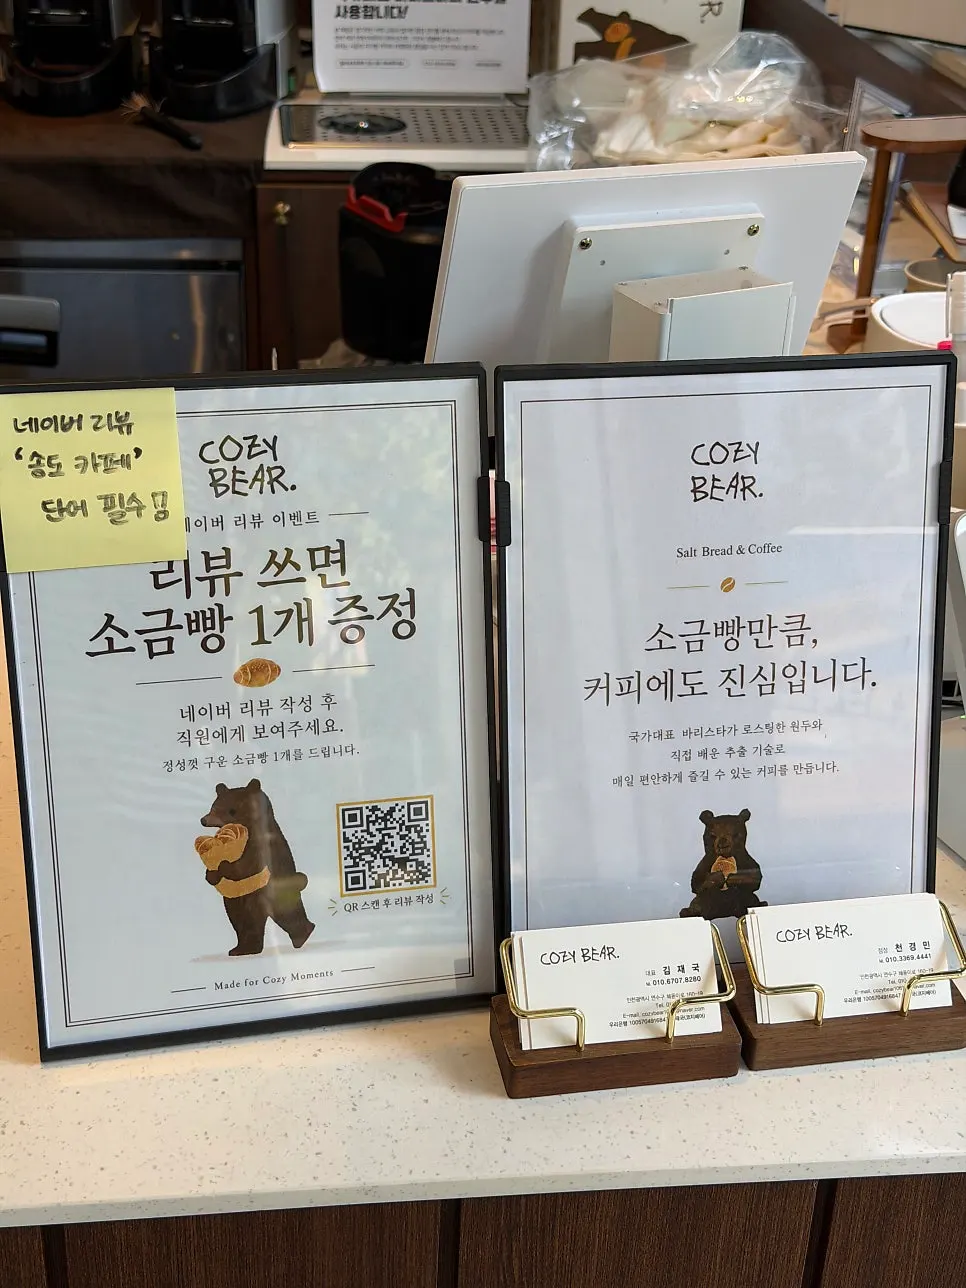 사용합니다!
네이버 리뷰
‘송도 카페’
단어 필수!!
COZY
BEAR.
네이버 리뷰 이벤트
리뷰 쓰면
소금빵 1개 증정
네이버 리뷰 작성 후
직원에게 보여주세요.
정성껏 구운 소금빵 1개를 드립니다.
QR 스캔 후 리뷰 작성
Made for Cozy Moments
COZY
BEAR.
Salt Bread & Coffee
소금빵만큼,
커피에도 진심입니다.
국가대표 바리스타가 로스팅한 원두와
직접 배운 추출 기술로
매일 편안하게 즐길 수 있는 커피를 만듭니다.
COZY BEAR.
대표 김재국
010.6707.8280
인천광역시 연수구
Tel.
E-mail.
우리은행
COZY BEAR.
점장 천경민
010.3369.4441
인천광역시 연수구
Tel.
E-mail.
우리은행